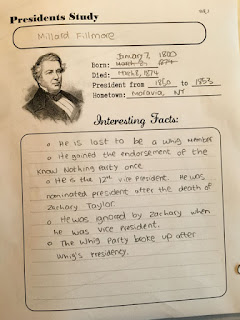 Presidents Study
Millard Fillmore
January 7, 1800
Born: March 8, 1874
Died: March 8, 1874
President from 1850 to 1853
Hometown: Moravia, NY
Interesting Facts:
o He is last to be a Whig member
o He gained the endorsement of the
Know Nothing Party once.
o He is the 12th vice President. He was
nominated president after the death of
Zachary Taylor.
o He was ignored by Zachary when
he was vice president.
o The Whig Party broke up after
Whig's Presidency.